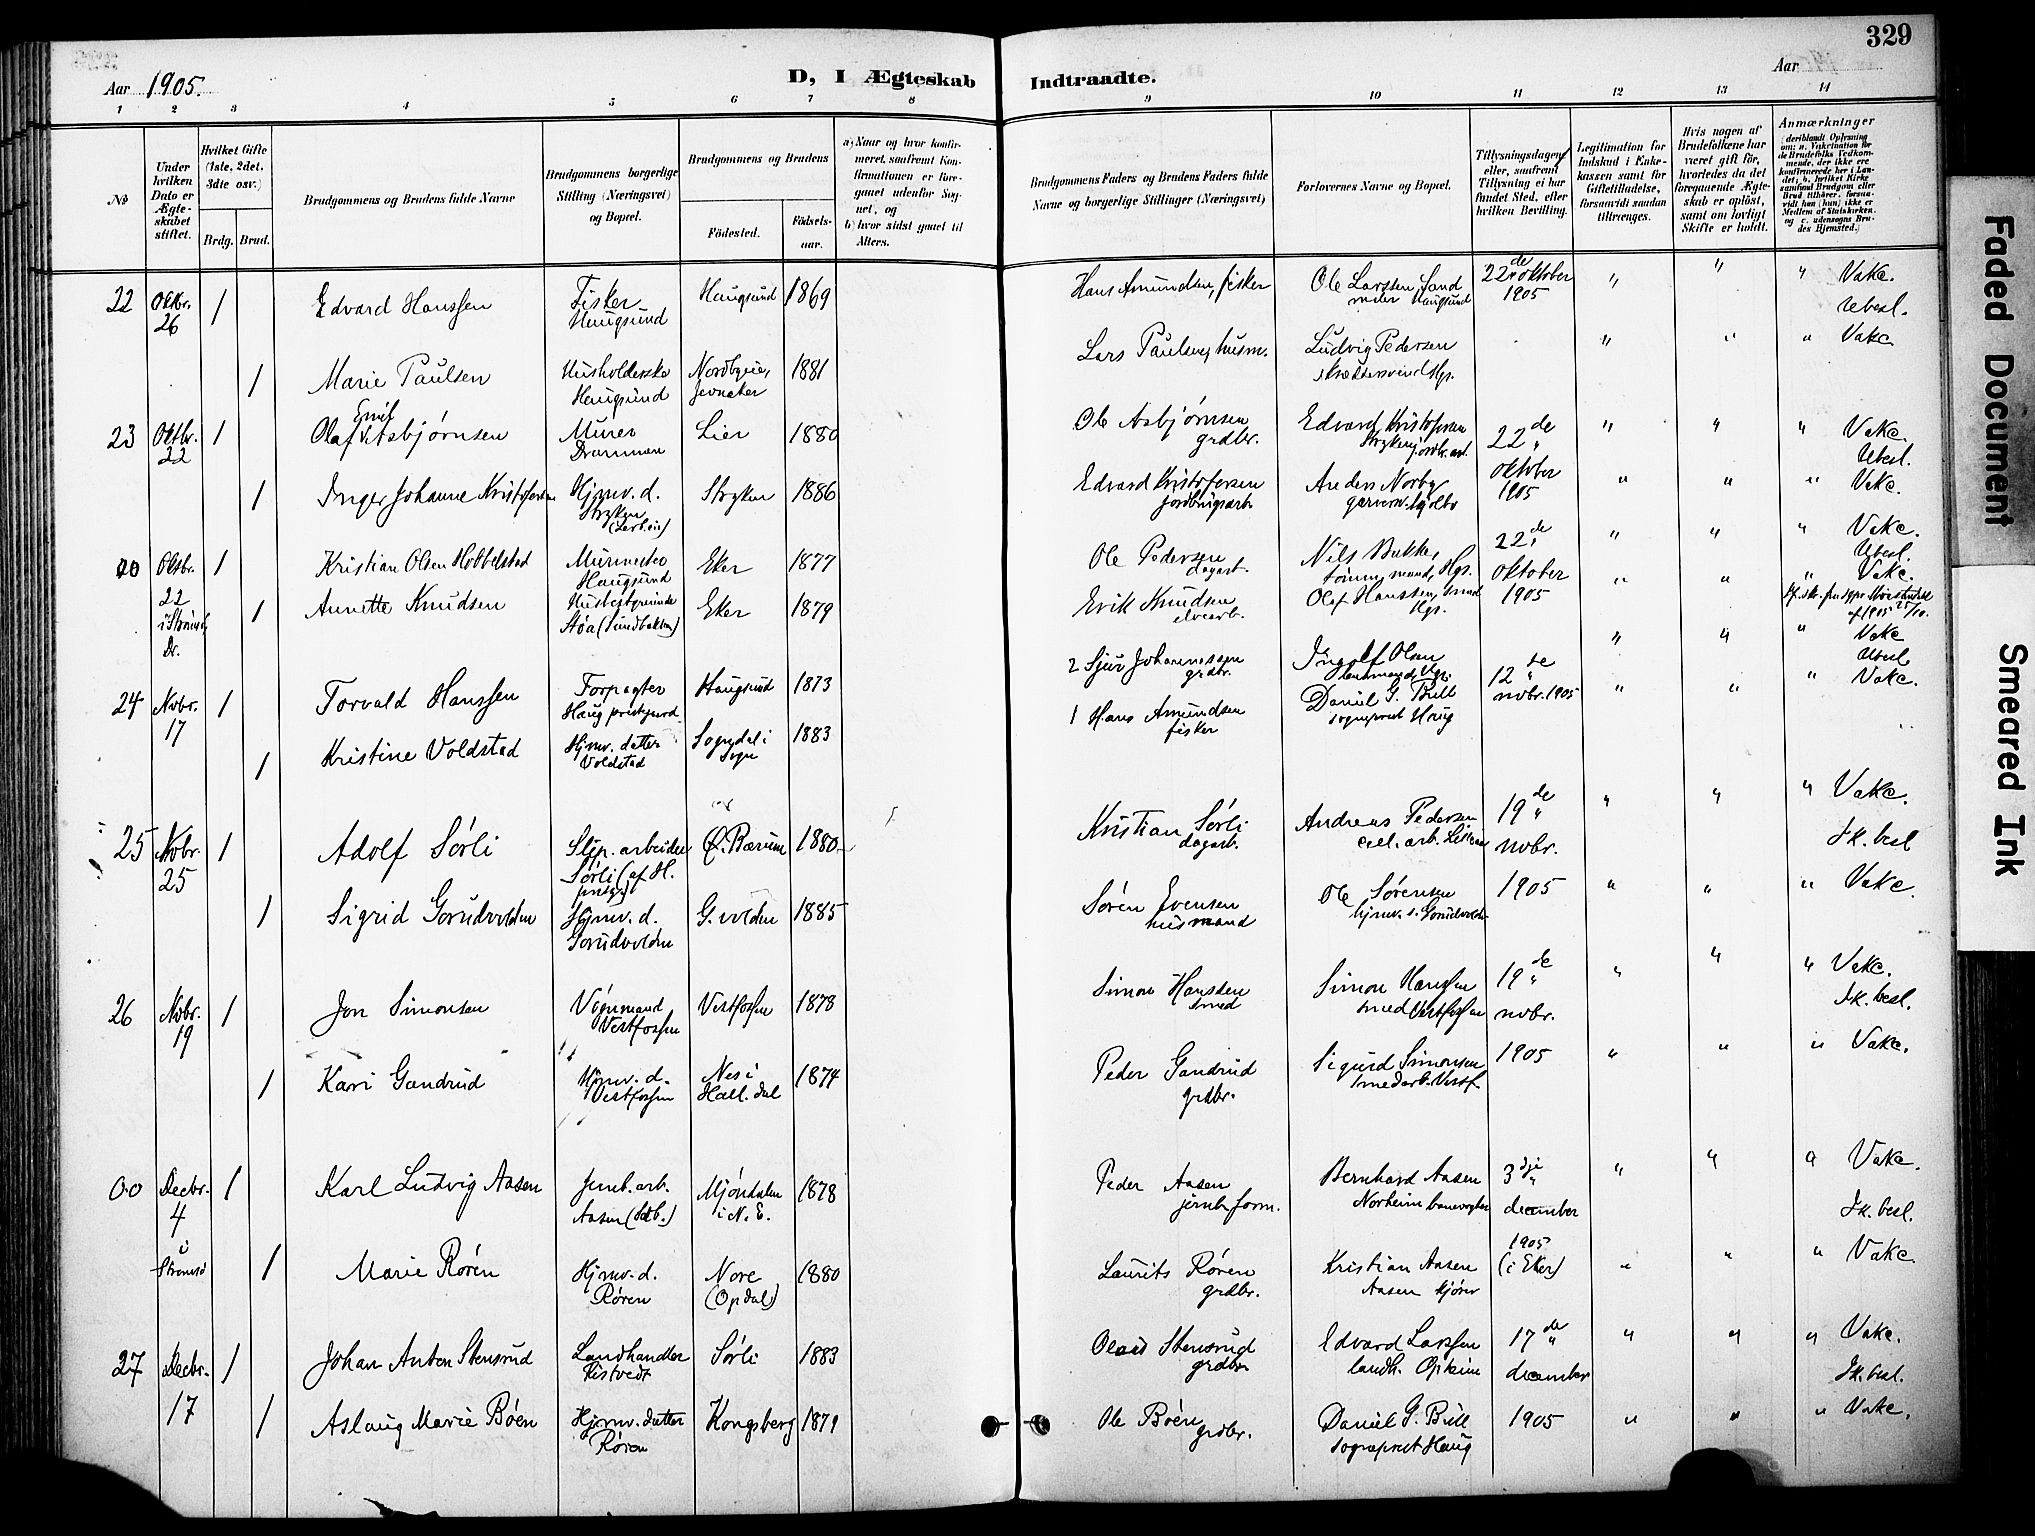 329
Aar 1905.
D, I Ægteskab
Indtraadte.
Aar
1 2 3 4 5 6 7 8 9 10 11 12 13 14
No
Under hvilken Dato er Ægteskabet stiftet.
Hvilket Gifte (1ste, 2det. 3die osv.)
Brdg. Brud.
Brudgommens og Brudens fulde Navne
Brudgommens borgerlige Stilling (Næringsvei) og Bopæl.
Brudgommens og Brudens
Födested.
Födselsaar.
a) Naar og hvor konfirmeret, saafremt Konfirmationen er foregaaet udenfor Sognet, og
b) hvor sidst gaaet til Alters.
Brudgommens Faders og Brudens Faders fulde Navne og borgerlige Stillinger (Næringsvei)
Forlovernes Navne og Bopæl.
Tillysningsdagene eller, saafremt Tillysning ei har fundet Sted, efter hvilken Bevilling.
Legitimation for Indskud i Enkekassen samt for Giftetilladelse, forsaavidt saadan tiltrenges.
Hvis nogen af Brudefolkene har været gift för, hvorledes da det foregaaende Ægteskab er oplöst, samt om lovligt Skifte er holdt.
Anmærkninger
22 Oktbr. 26 1 Edvard Hanssen Fisker Haugsund Haugsund 1869 Hans Amundsen, fisker Ole Larsen Sand Haugsund 22de oktober 1905 " " " Vakc. Ubesl.
1 Marie Paulsen Husholderske Haugsund Jevnaker 1881 Lars Paulsen, husm. Ludvig Pedersen Hgs. " " " Vakc
23 Oktbr. 22 1 Olaf Emil Asbjørnsen Murer Drammen Lier 1880 Ole Asbjørnsen grdbr. Edvard Kristofersen Stryken, jordbr.arb. 22de oktober 1905 " " " Vakc. Ubesl.
1 Inger Johanne Kristofersen Hjmv. d. Stryken Stryken 1886 Edvard Kristofersen jordbrugsarb. Anders Norby " " " Vakc.
Oktbr. 22 1 Kristian Olsen Hobbelstad Murmester Haugsund Eker 1877 Ole Pedersen dagarb. Nils Bakke, Hgs. 22de oktober 1905 " " " Vakc. Ubesl.
1 Annette Knudsen Støa (Sundbakken) Eker 1879 Erik Knudsen elvearb. Olaf Hanssen, Hgs. " " " Vakc.
24 Novbr. 17 1 Torvald Hanssen Forpagter Haug prestgaard Haugsund 1873 2 Sjur Johannessen grdbr. Ingolf Olsen 12de novbr. 1905 " " " Vakc Ubesl
1 Kristine Voldstad Hjmv. datter Voldstad Sogndal i Sogn 1883 1 Hans Amundsen fisker Daniel G. Brill sogneprest Haug " " " Vakc.
25 Novbr. 25 1 Adolf Sørli Slip. arbeider Sørli Ø. Bærum 1880 Kristian Sørli dagarb. Andreas Pedersen cell. arb. 19de novbr. 1905 " " " Vakc. Sk. besl
1 Sigrid Gorudvolden Hjmv. d. Gorudvolden G.volden 1885 Søren Evensen husmand Ole Sørensen hjmv. s. Gorudvolden " " " Vakc.
26 Novbr. 19 1 Jon Simonsen Vognmand Vestfossen Vestfossen 1878 Simon Hanssen smed Simon Hanssen smed Vestfossen 19de novbr. 1905 " " " Vakc. Sk. besl.
1 Kari Gandrud Hjmv. d. Vestfossen Nes i Hall.dal 1874 Peder Gandrud grdbr. Sigurd Simonsen smedarb. Vestf. " " " Vakc.
00 Decbr. 4 i Strømsø 1 Karl Ludvig Aasen Jernb.arb. Aasen Mjøndalen i N. E. 1878 Peder Aasen jernb.form. Bernhard Aasen Norheim banevogter 3dje december 1905 (i Eker) " " " Vakc. Sk. besl.
1 Marie Røren Hjmv. d. Røren Nore (Opdal) 1880 Laurits Røren grdbr. Kristian Aasen Aasen kjører " " " Vakc
27 Decbr. 17 1 Johan Anton Stensrud Landhandler Kistvedt Sørli 1883 Olaus Stensrud grdbr. Edvard Larssen landh. Opheim 17de december 1905 " " " Vakc. Sk. besl.
1 Aslaug Marie Bøen Hjmv. datter Røren Kongsberg 1879 Ole Bøen grdbr. Daniel G. Brill sogneprest Haug " " " Vakc.
Faded Document
Smeared Ink